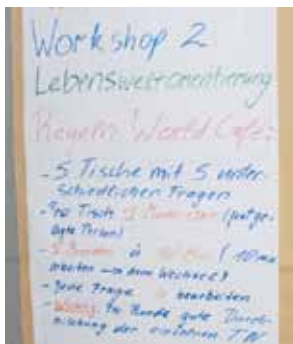 Workshop 2
Lebensweltorientierung
Regeln World Café:
- 5 Tische mit 5 unter-
schiedlichen Fragen
- Pro Tisch 1
- 5 Runden à (10 min
- Jede Frage bearbeiten
- Wichtig: Pro Runde gute Durch-
mischung der einzelnen TN